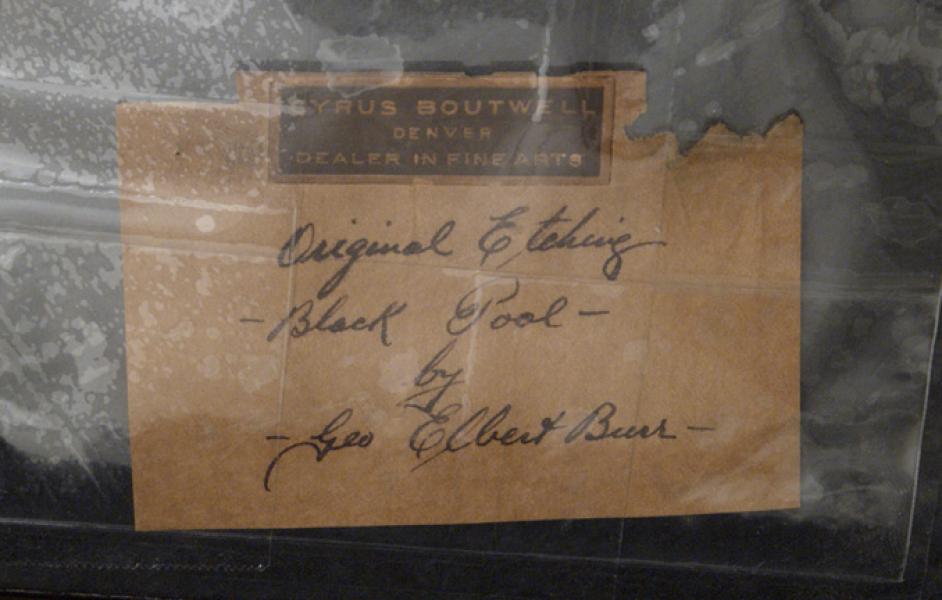 CYRUS BOUTWELL
DENVER
DEALER IN FINE ARTS
Original Etching
- Black Pool -
by
- Geo Elbert Burr -